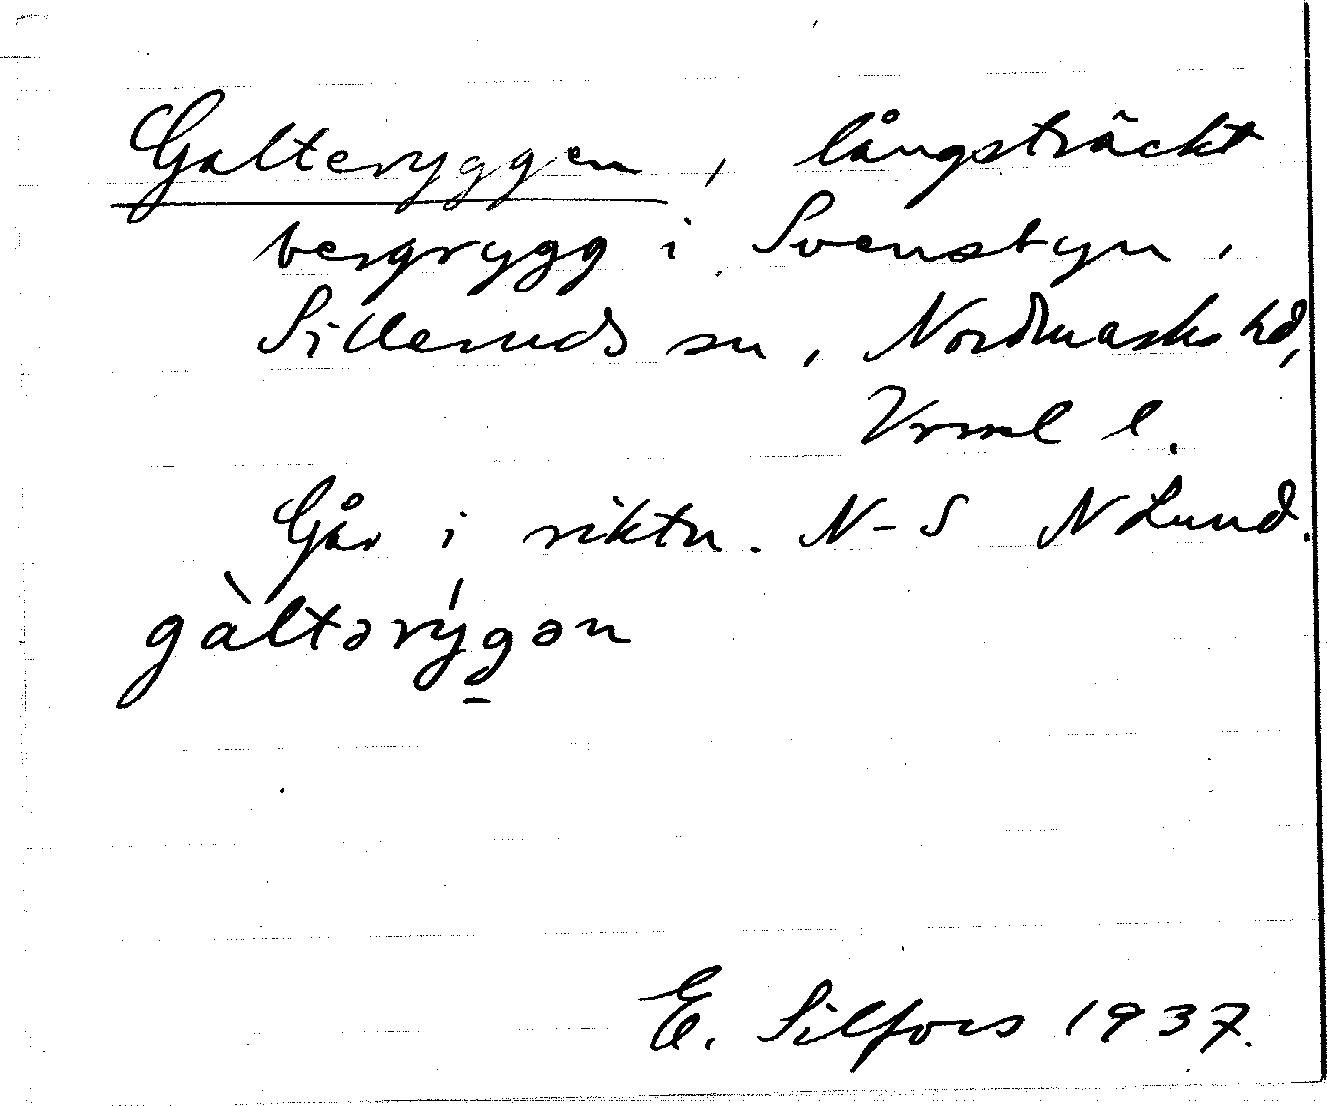 Galteryggen, långsträckt
bergrygg i Svensbyn,
Silleruds sn, Nordmarks hd,
Vrml l.
Går i riktn. N-S N Lund.
gàltərýgən
E. Silfors 1937.